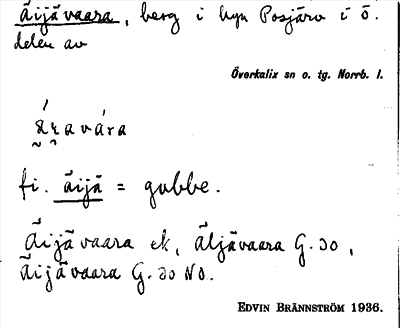 Äijävaara, berg i byn Posjärv i ö.
delen av
Överkalix sn o. tg. Norrb. l.
fi. äijä = gubbe.
Äijävaara ek, Äljävaara G. 30,
Äijävaara G. 30 NO.
EDVIN BRÄNNSTRÖM 1936.